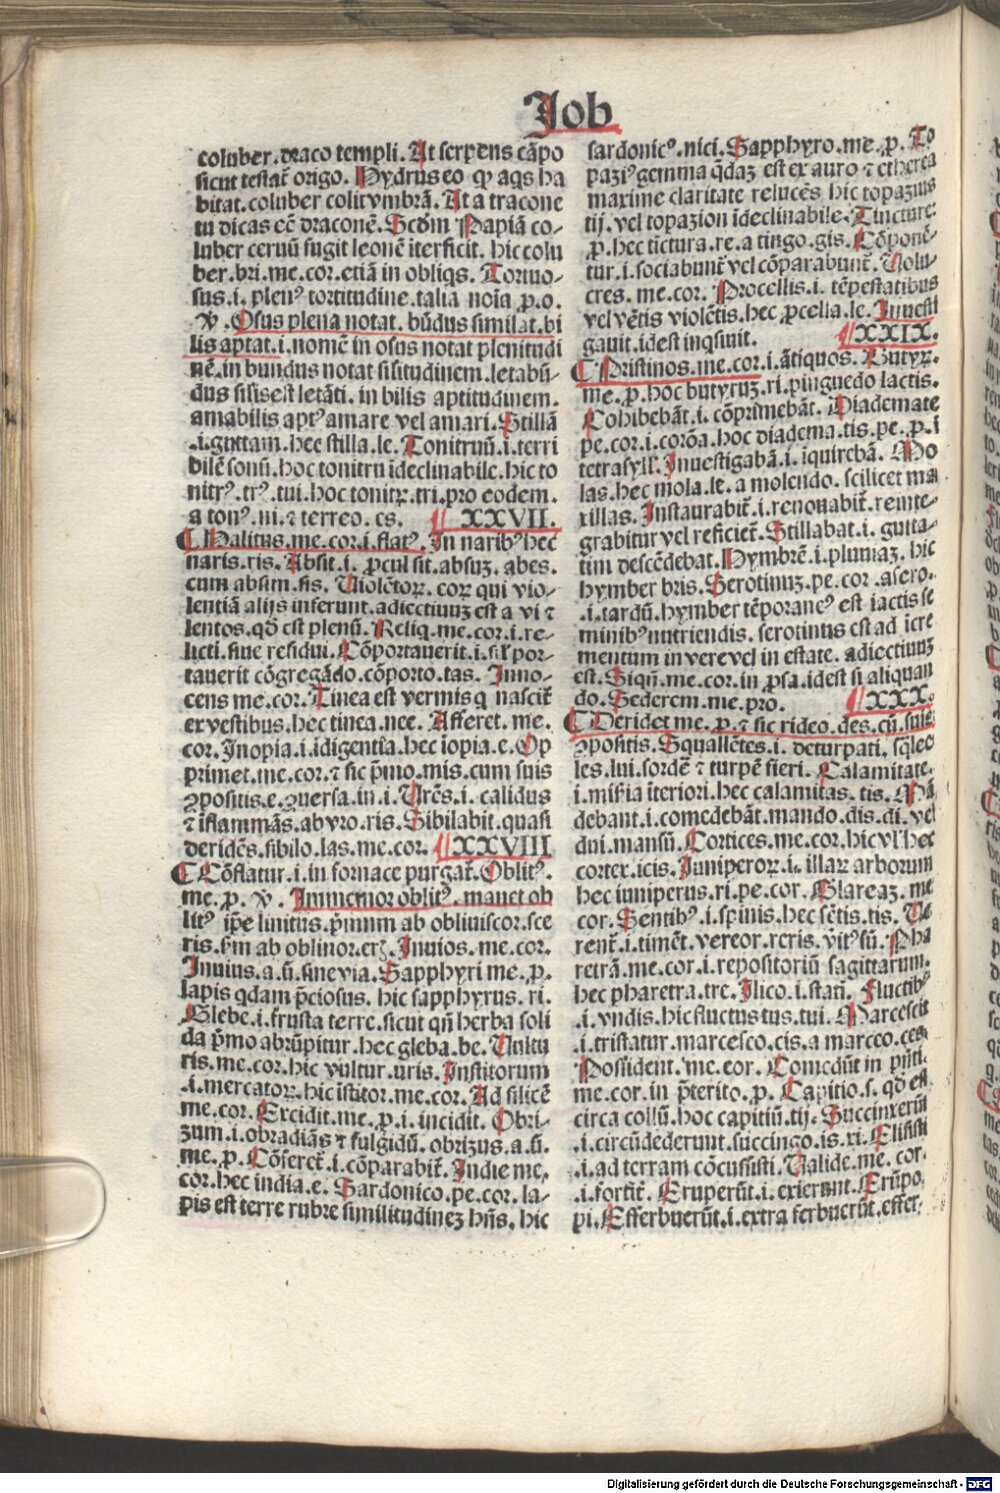 Job
coluber.draco templi.At serpens cãpo
sicut testat᷑ origo. Hydrus eo ꝙ aq̃s ha
bitat.coluber colit vmbrã.At a tracone
tu dicas eẽ draconẽ.Scd'm Papiã co-
luber ceruũ fugit leonẽ iterficit. hic colu
ber.bri.me.cor.etiã in obliq̃s. Tortuo-
sus.i. plenꝰ tortitudine.talia noĩa .p.o.
℣.Osus plena notat. bũdus similat.bi
lis aptat.i.nomẽ in osus notat plenitudi
nẽ.in bundus notat silitudinem.letabũ-
dus silis est letãti. in bilis aptitudinem.
amabilis aptꝰ amare vel amari. Stillã
.i.guttam.hec stilla.le. Tonitruũ.i.terri
bilẽ sonũ.hoc tonitru ĩdeclinabile.hic to
nitrꝰ.trꝰ.tui.hoc tonitrꝛ.tri.pro eodem.
a tonꝰ.ni.⁊ terreo.es. ¶ XXVII.
¶ Halitus.me.cor.i.flatꝰ. In naribꝰ hec
naris.ris. Absit.i. ꝓcul sit.absuꝫ.abes.
cum absum.fis. Violẽtoꝝ. coꝝ qui vio-
lentiã alijs inferunt.adiectiuuꝫ est a vi ⁊
lentos.qḋ est plenũ. Reliq̃.me.cor.i.re-
licti.siue residui. Cõportauerit.i.sil' por-
tauerit cõgregãdo.cõporto.tas. Inno-
cens me.cor. Tinea est vermis q̃ nascit᷑
ex vestibus.hec tinea.nee. Afferet.me.
cor.Inopia.i.idigentia.hec iopia.e.Op
primet.me.cor.⁊ sic p̃mo.mis.cum suis
ꝯpositis.e.ꝯuersa.in.i.Vrẽs.i. calidus
⁊ ĩflammãs.ab vro.ris.Sibilabit.quasi
deridẽs.sibilo.las.me.cor. ¶XXVIII
¶ Cõflatur.i.in fornace purgat᷑.Oblitꝰ.
me.p. ℣. Immemor oblitꝰ.manet ob
litꝰ ip̃e linitus.p̃mum ab obliuiscor.sce
ris.s'm ab oblinor.erꝫ.Inuios.me.cor.
Inuius.a.ũ.sine via.Sapphyri me.p.
lapis q̃dam p̃ciosus. hic sapphyrus. ri.
Glebe.i.frusta terre.sicut qñ herba soli
da p̃mo abrũpitur.hec gleba.be. Vultu
ris.me.cor.hic vultur.uris.Institorum
.i.mercatoꝝ.hic ĩstitor.me.cor.Ad silicẽ
me.cor. Excidit.me.p.i.incidit. Obri-
zum.i.obradiãs ⁊ fulgidũ.obrizus.a.ũ.
me.p. Cõferet᷑.i.cõparabit᷑.Indie me.
cor.hec india.e. Sardonico.pe.cor. la-
pis est terre rubre similitudineꝫ hñs. hic
sardonicꝰ.nici.Sapphyro.me.p. To
paziꝰ gemma q̃daꝫ est ex auro ⁊ etherea
maxime claritate relucẽs hic topazius
tij.vel topazion ĩdeclinabile.Tincture.
p.hec tictura.re.a tingo.gis. Cõponẽ-
tur.i.sociabunt᷑ vel cõparabunt᷑.Uolu-
cres. me.cor. Procellis.i. tẽpestatibus
vel vẽtis violẽtis.hec ꝓcella.le. Inuesti
gauit.idest inq̃siuit. ¶XXIX.
¶ Pristinos.me.cor.i.ãtiquos. Butyꝝ.
me.p.hoc butyruꝫ.ri.pinguedo lactis.
Cohibebãt.i.cõprimebãt. Diademate
pe.cor.i.corõa.hoc diadema.tis.pe.p.ĩ
tetrasyll'. Inuestigabã.i.iquirebã. Mo
las.hec mola.le.a molendo.scilicet ma
xillas. Instaurabit᷑.i.renouabit᷑.reinte-
grabitur vel reficiet᷑.Stillabat.i.gutta-
tim descẽdebat.Hymbrẽ.i.pluuiaꝫ.hic
hymber bris.Serotinuꝫ.pe.cor.a sero.
.i.tardũ.hymber tẽporaneꝰ est iactis se
minibꝰ nutriendis.serotinus est ad icre
mentum in vere vel in estate. adiectiuuꝫ
est.Siqñ.me.cor.in ꝓsa.idest si aliquan
do. Sederem.me.pro. ¶XXX.
¶ Deridet me.p.⁊ sic rideo.des.cũ.suis
ꝯpositis.Squallẽtes.i. deturpati.sq̃leo
les.lui.sordẽ ⁊ turpẽ fieri. Calamitate.
i.mis'ia ĩteriori.hec calamitas.tis. Mã
debant.i.comedebãt.mando.dis.di.vel
dui.mansũ. Cortices.me.cor.hic vl' hec
cortex.icis. Juniperoꝝ.i. illaꝝ arborum
hec iuniperus.ri.pe.cor. Glareaꝫ. me
cor. Sentibꝰ.i.spinis.hec sẽtis.tis. Ve
rent᷑.i.timẽt.vereor.reris.v̾itꝰ sũ. Pha
retrã.me.cor.i.repositoriũ sagittarum.
hec pharetra.tre. Ilico.i.statĩ. Fluctibꝰ
.i.vndis.hic fluctus tus.tui. Marcescit
.i.tristatur.marcesco.cis.a marceo.ces.
Possident. me.cor. Comedũt in p̃nti.
me.cor.in p̃terito.p. Capitio.s. qḋ est
circa collũ.hoc capitiũ.tij.Succinxerũt
.i.circũdederunt.succingo.is.xi. Elisisti
.i.ad terram cõcussisti. Valide.me. cor.
.i.fortit᷑. Eruperũt.i.exierunt. Erũpo.
pi.Efferbuerũt.i.extra ferbuerũt.effer-
Digitalisierung gefördert durch die Deutsche Forschungsgemeinschaft - DFG